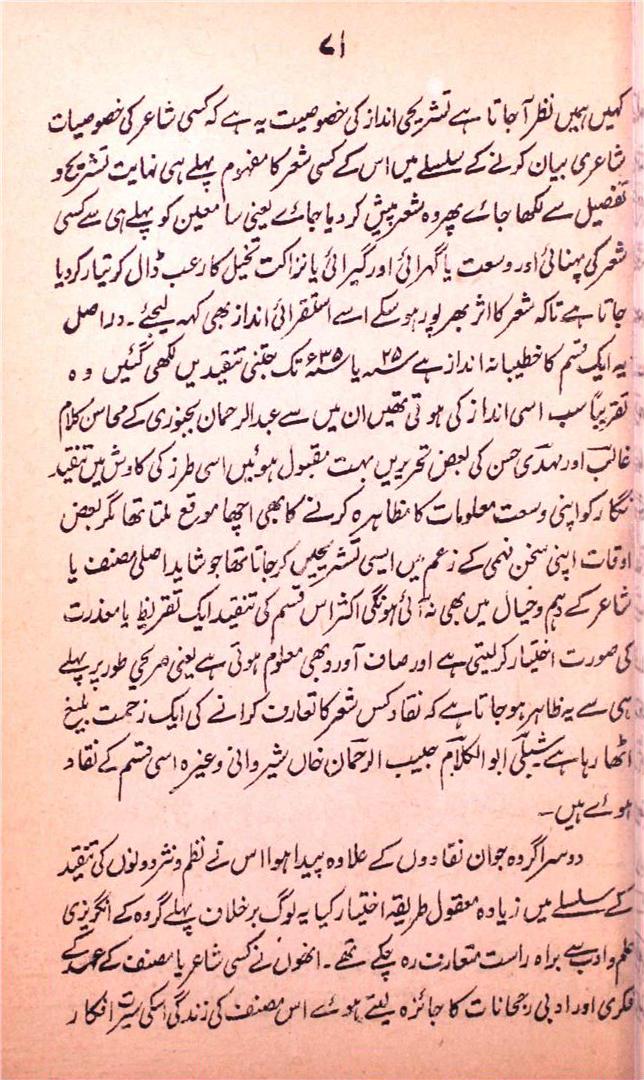 ۷۱
کہیں ہمیں نظر آجاتا ہے تشریحی انداز کی خصوصیت یہ ہے کہ کسی شاعر کی خصوصیات
شاعری بیان کرنے کے سلسلے میں اس کے کسی شعر کا مفہوم پہلے ہی نہایت تشریح و
تفصیل سے لکھا جائے پھر وہ شعر پیش کر دیا جائے یعنی سامعین کو پہلے ہی سے کسی
شعر کی پہنائی اور وسعت یا گہرائی اور گیرائی یا نزاکت تخیل کا رعب ڈال کر تیار کر دیا
جاتا ہے تاکہ شعر کا اثر بھرپور ہو سکے اسے استقرائی انداز بھی کہہ لیجئے ۔ در اصل
یہ ایک قسم کا خطیبانہ انداز ہے ۲۵ء یا ۳۵ء تک جتنی تنقیدیں لکھی گئیں وہ
تقریباً سب اسی انداز کی ہوتی تھیں ان میں سے عبد الرحمان بجنوری کے محاسن کلام
غالب اور مہدی حسن کی بعض تحریریں بہت مقبول ہوئیں اسی طرز کی کاوش میں تنقید
نگار کو اپنی وسعت معلومات کا مظاہرہ کرنے کا بھی اچھا موقع ملتا تھا مگر بعض
اوقات اپنی سخن فہمی کے زعم میں ایسی تشریحیں کر جاتا تھا جو شاید اصلی مصنف یا
شاعر کے وہم و خیال میں بھی نہ آئی ہونگی اکثر اس قسم کی تنقید ایک تقریظ یا معذرت
کی صورت اختیار کر لیتی ہے اور صاف آورد بھی معلوم ہوتی ہے یعنی صریحی طور پر پہلے
ہی سے یہ ظاہر ہو جاتا ہے کہ نقاد کس شعر کا تعارف کرانے کی ایک زحمت بلیغ
اٹھا رہا ہے شبلی ابو الکلام حبیب الرحمان خاں شیروانی وغیرہ اسی قسم کے نقاد
ہوئے ہیں ۔
دوسرا گروہ جو ان نقادوں کے علاوہ پیدا ہوا اس نے نظم و نثر دونوں کی تنقید
کے سلسلے میں زیادہ معقول طریقہ اختیار کیا یہ لوگ برخلاف پہلے گروہ کے انگریزی
علم و ادب سے براہ راست متعارف رہ چکے تھے ۔ انھوں نے کسی شاعر یا مصنف کے عہد کے
فکری اور ادبی رجحانات کا جائزہ لیتے ہوئے اس مصنف کی زندگی اسکی سیرت افکار